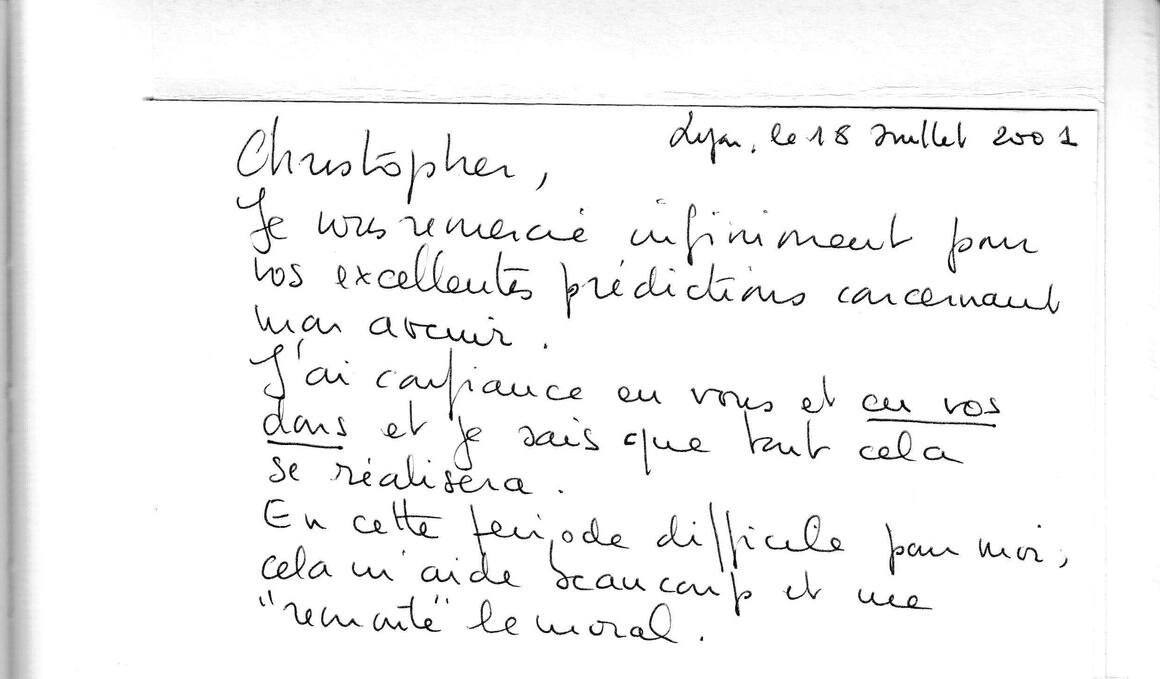 Lyon, le 18 Juillet 2001
Christopher,
Je vous remercie infiniment pour
vos excellentes prédictions concernant
mon avenir.
J'ai confiance en vous et en vos
dons et je sais que tout cela
se réalisera.
En cette période difficile pour moi,
cela m'aide beaucoup et me
"remonte" le moral.